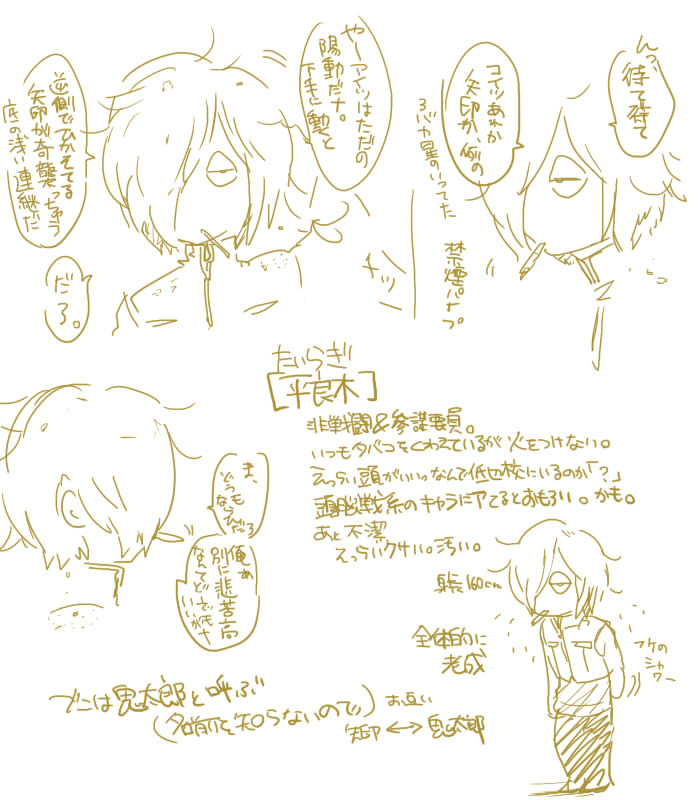 んっ、
待て待て
コイツあれか
矢印か、例の
バカ星のいってた
禁煙パイプ。
やーアイツはただの
陽動だナ。
下手に動くと
逆側でひかえてる
矢印が奇襲っちゃう
底の浅い連継だ
だろ。
たいらぎ
[平良木]
非戦闘&参謀要員。
いつもタバコをくわえているが火をつけない。
えっらい頭がいいっなんで低辺校にいるのか「?」
頭脳戦系のキャラにアてるとおもろい。かも。
あと不潔
えっらいクサい。汚い。
身長160cm
全体的に
老成
フケの
シャワー
ま、
どうも
ならひだろ
俺ぁ
別に悲苦高
なんてどーでも
いいがナ
デコは鬼太郎と呼ぶ
(名前を知らないので)
お互い
矢印↔鬼太郎